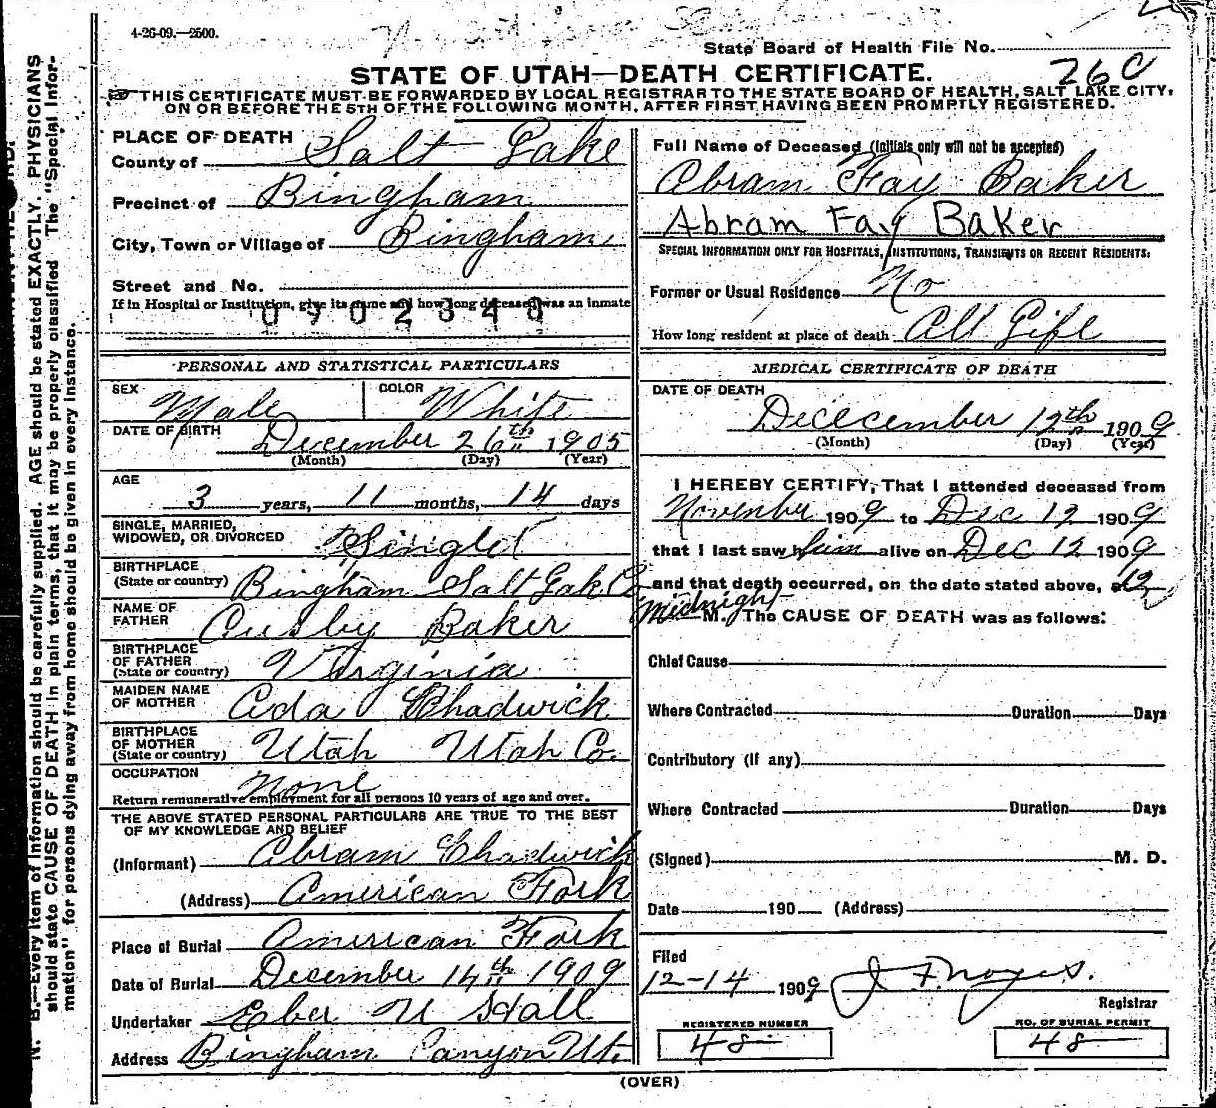 4-26-09.—2500.
State Board of Health File No.
STATE OF UTAH—DEATH CERTIFICATE.
26 C
THIS CERTIFICATE MUST BE FORWARDED BY LOCAL REGISTRAR TO THE STATE BOARD OF HEALTH, SALT LAKE CITY,
ON OR BEFORE THE 5TH OF THE FOLLOWING MONTH, AFTER FIRST HAVING BEEN PROMPTLY REGISTERED.
PLACE OF DEATH
County of Salt Lake
Precinct of Bingham
City, Town or Village of Bingham
Street and No.
If in Hospital or Institution, give its name and how long deceased was an inmate
0902348
PERSONAL AND STATISTICAL PARTICULARS
SEX Male COLOR White
DATE OF BIRTH December 26th 1905
(Month) (Day) (Year)
AGE
3 years, 11 months, 14 days
SINGLE, MARRIED,
WIDOWED, OR DIVORCED Single
BIRTHPLACE
(State or country) Bingham Salt Lak Co
NAME OF
FATHER Baker
BIRTHPLACE
OF FATHER
(State or country) Virginia
MAIDEN NAME
OF MOTHER Ada Chadwick
BIRTHPLACE
OF MOTHER
(State or country) Utah Utah Co.
OCCUPATION None
Return remunerative employment for all persons 10 years of age and over.
THE ABOVE STATED PERSONAL PARTICULARS ARE TRUE TO THE BEST
OF MY KNOWLEDGE AND BELIEF
(Informant) Abram Chadwick
(Address) American Fork
Place of Burial American Fork
Date of Burial December 14th 1909
Undertaker Eber U Hall
Address Bingham Canyon Ut.
Full Name of Deceased (Initials only will not be accepted)
Abram Fay Baker
Abram Fay Baker
SPECIAL INFORMATION ONLY FOR HOSPITALS, INSTITUTIONS, TRANSIENTS OR RECENT RESIDENTS:
Former or Usual Residence No
How long resident at place of death All Life
MEDICAL CERTIFICATE OF DEATH
DATE OF DEATH
Dececember 12th 1909
(Month) (Day) (Year)
I HEREBY CERTIFY, That I attended deceased from
November 1909 to Dec 12 1909
that I last saw him alive on Dec 12 1909
and that death occurred, on the date stated above, at 12
Midnight M. The CAUSE OF DEATH was as follows:
Chief Cause
Where Contracted Duration Days
Contributory (if any)
Where Contracted Duration Days
(Signed) M. D.
Date 190 (Address)
Filed
12-14 1909 J F Noyes.
Registrar
REGISTERED NUMBER
48
NO. OF BURIAL PERMIT
48
(OVER)
N. B.—Every item of information should be carefully supplied. AGE should be stated EXACTLY. PHYSICIANS
should state CAUSE OF DEATH in plain terms, that it may be properly classified. The "Special Infor-
mation" for persons dying away from home should be given in every instance.